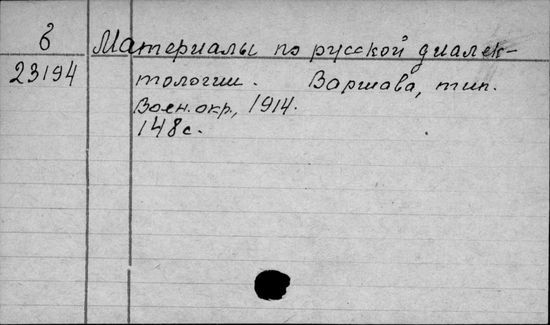 в Материалы по русской диалек-
23194 тологии. Варшава, тип.
Воен. окр., 1914.
148 с.